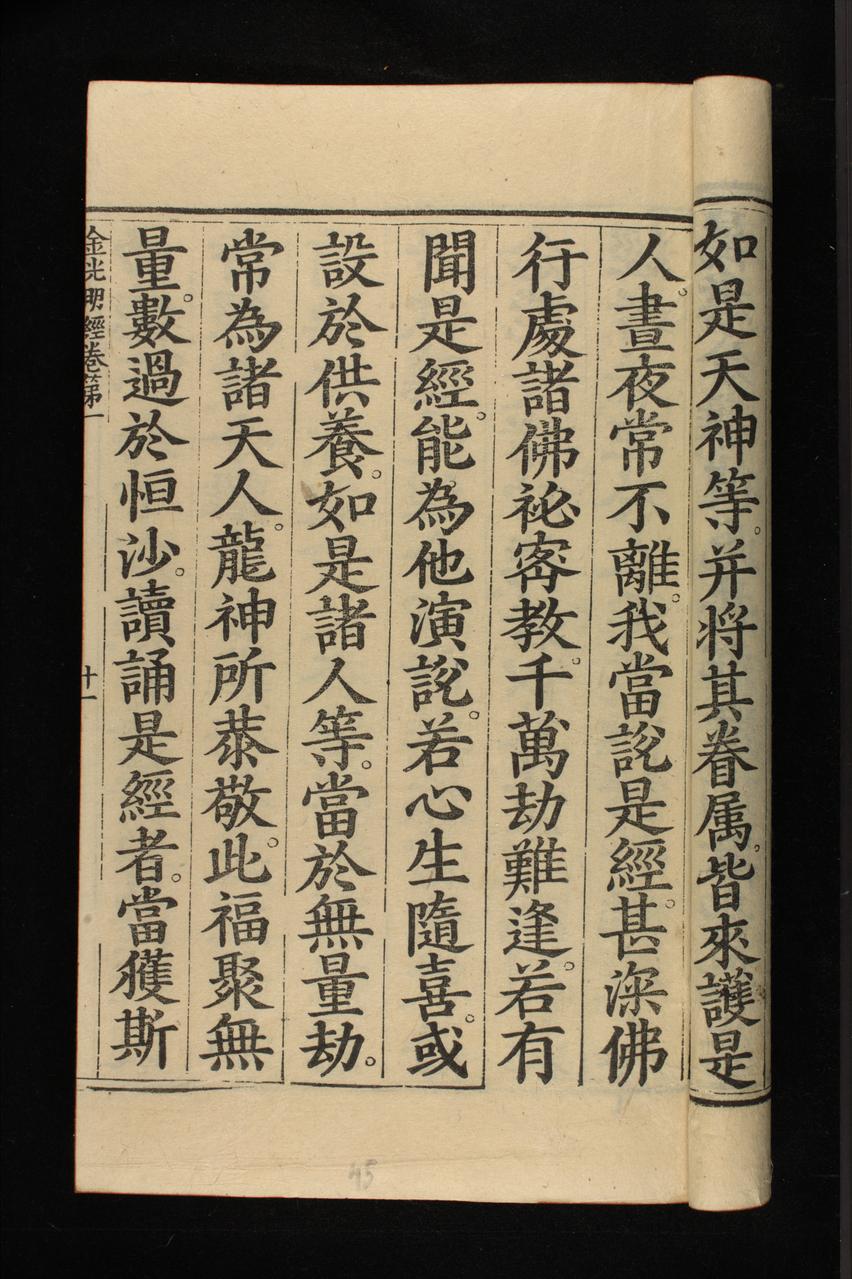 如是天神等。并将其眷属。皆來護是
人。晝夜常不離。我當說是經。甚深佛
行處。諸佛祕密教。千萬劫難逢。若有
聞是經。能為他演說。若心生隨喜。或
設於供養。如是諸人等。當於無量劫。
常為諸天人。龍神所恭敬。此福聚無
量。數過於恒沙。讀誦是經者。當獲斯
金光明經卷第一
十一
45